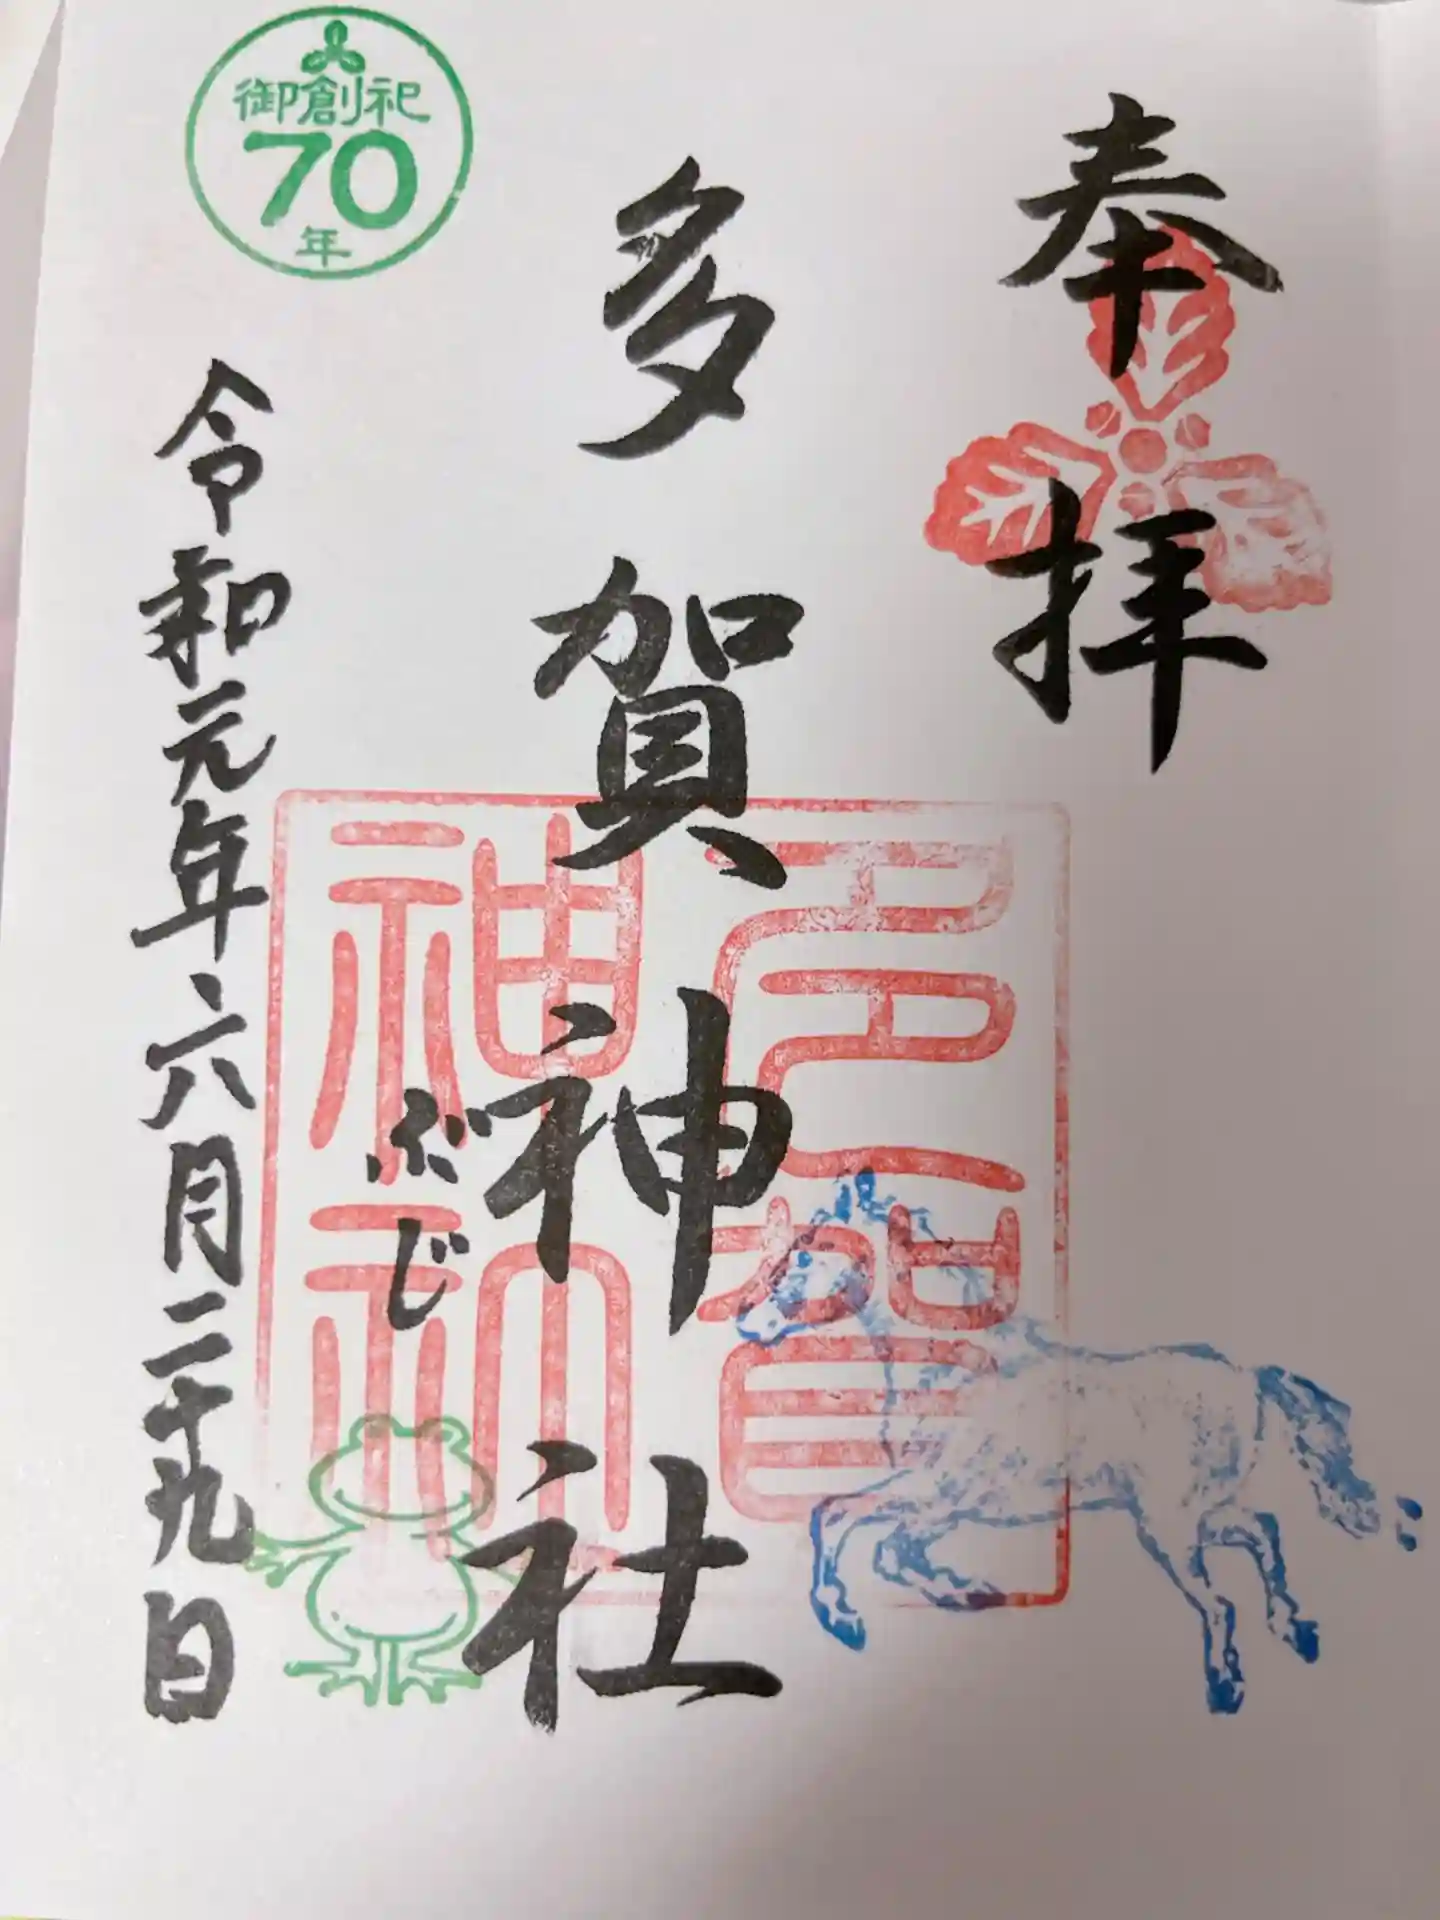 奉拝
多賀神社
多賀神社
ぶじ
御創祀
70
年
令和元年六月二十九日